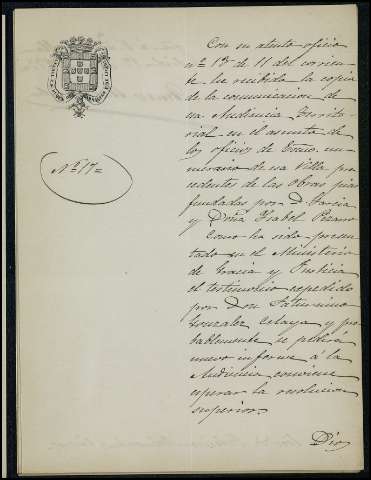 Nº 17=
Con su atento oficio
nº 13 de 11 del corrien-
te he recibido la copia
de la comunicacion de
esa Audiencia Territo-
rial en el asunto de
los oficios de Escno. nu-
merario de esa Villa pro-
cedentes de las Obras pias
fundadas por D.
y Doña Ysabel Pizarro
Como ha sido presen-
tado en el Ministerio
de Gracia y Justicia
el testimonio espedido
por Don Saturnino
Gonzalez Celaya y pro-
bablemente se pedirá
nuevo informe á la
Audiencia conviene
esperar la resolucion
superior.
Dios